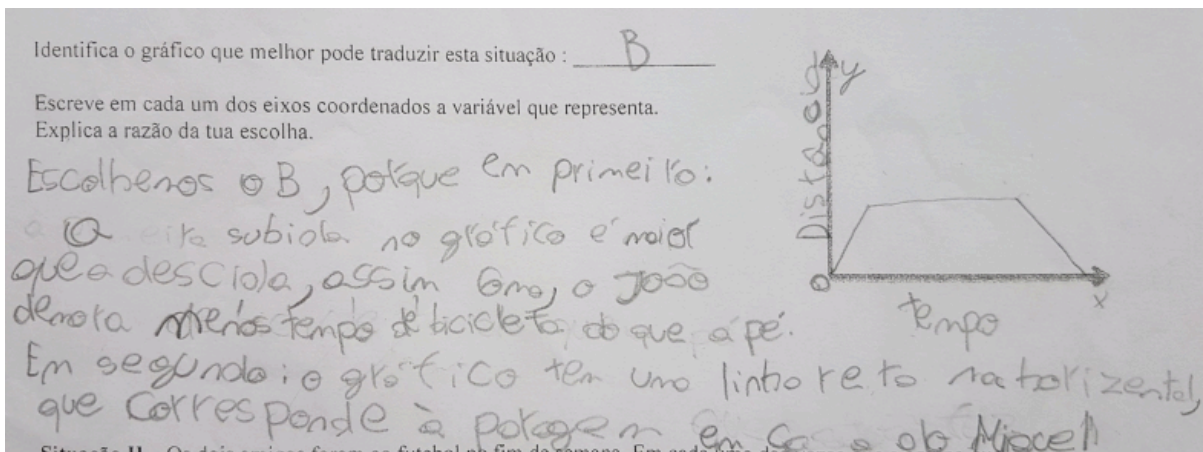 Identifica o gráfico que melhor pode traduzir esta situação : B
Escreve em cada um dos eixos coordenados a variável que representa.
Explica a razão da tua escolha.
Escolhenos o B, porque em primeiro:
a subida no gráfico é maior
que a descida, assim como, o João
demora menos tempo de bicicleta do que a pé.
Em segundo: o gráfico tem uma linha reta na horizental,
que corresponde à paragem em casa do Miguel
Distancia
y
0
x
tempo